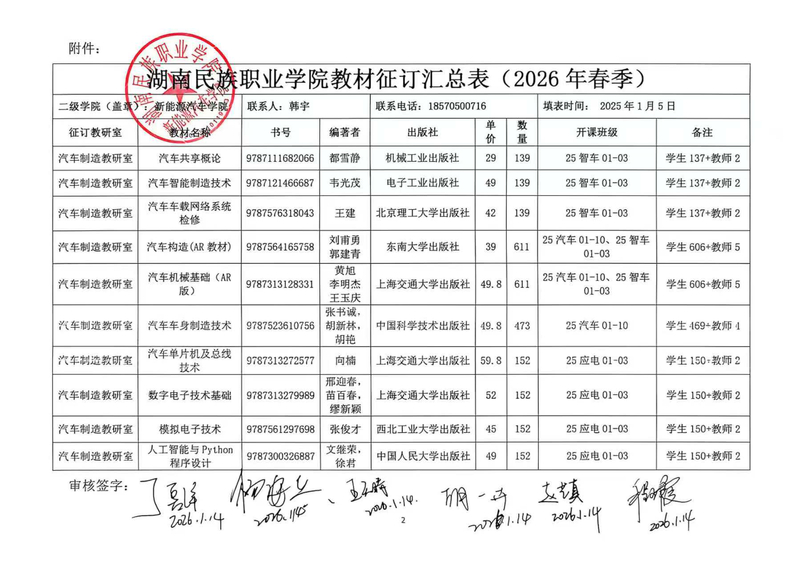 附件：
湖南民族职业学院教材征订汇总表（2026年春季）
二级学院（盖章）：新能源汽车学院 联系人：韩宇 联系电话：18570500716 填表时间： 2025年1月5日
征订教研室 教材名称 书号 编著者 出版社 单价 数量 开课班级 备注
汽车制造教研室 汽车共享概论 9787111682066 都雪静 机械工业出版社 29 139 25智车01-03 学生137+教师2
汽车制造教研室 汽车智能制造技术 9787121466687 韦光茂 电子工业出版社 49 139 25智车01-03 学生137+教师2
汽车制造教研室 汽车车载网络系统检修 9787576318043 王建 北京理工大学出版社 42 139 25智车01-03 学生137+教师2
汽车制造教研室 汽车构造(AR教材) 9787564165758 刘甫勇 郭建青 东南大学出版社 39 611 25汽车01-10、25智车01-03 学生606+教师5
汽车制造教研室 汽车机械基础（AR版） 9787313128331 黄旭 李明杰 王玉庆 上海交通大学出版社 49.8 611 25汽车01-10、25智车01-03 学生606+教师5
汽车制造教研室 汽车车身制造技术 9787523610756 张书诚，胡新林，胡艳 中国科学技术出版社 49.8 473 25汽车01-10 学生469+教师4
汽车制造教研室 汽车单片机及总线技术 9787313272577 向楠 上海交通大学出版社 59.8 152 25应电01-03 学生150+教师2
汽车制造教研室 数字电子技术基础 9787313279989 邢迎春，苗百春，缪新颖 上海交通大学出版社 52 152 25应电01-03 学生150+教师2
汽车制造教研室 模拟电子技术 9787561297698 张俊才 西北工业大学出版社 45 152 25应电01-03 学生150+教师2
汽车制造教研室 人工智能与Python程序设计 9787300326887 文继荣，徐君 中国人民大学出版社 49 152 25应电01-03 学生150+教师2
审核签字：
2026.1.14 2026.1.14 2026.1.14 2026.1.14 2026.1.14
2